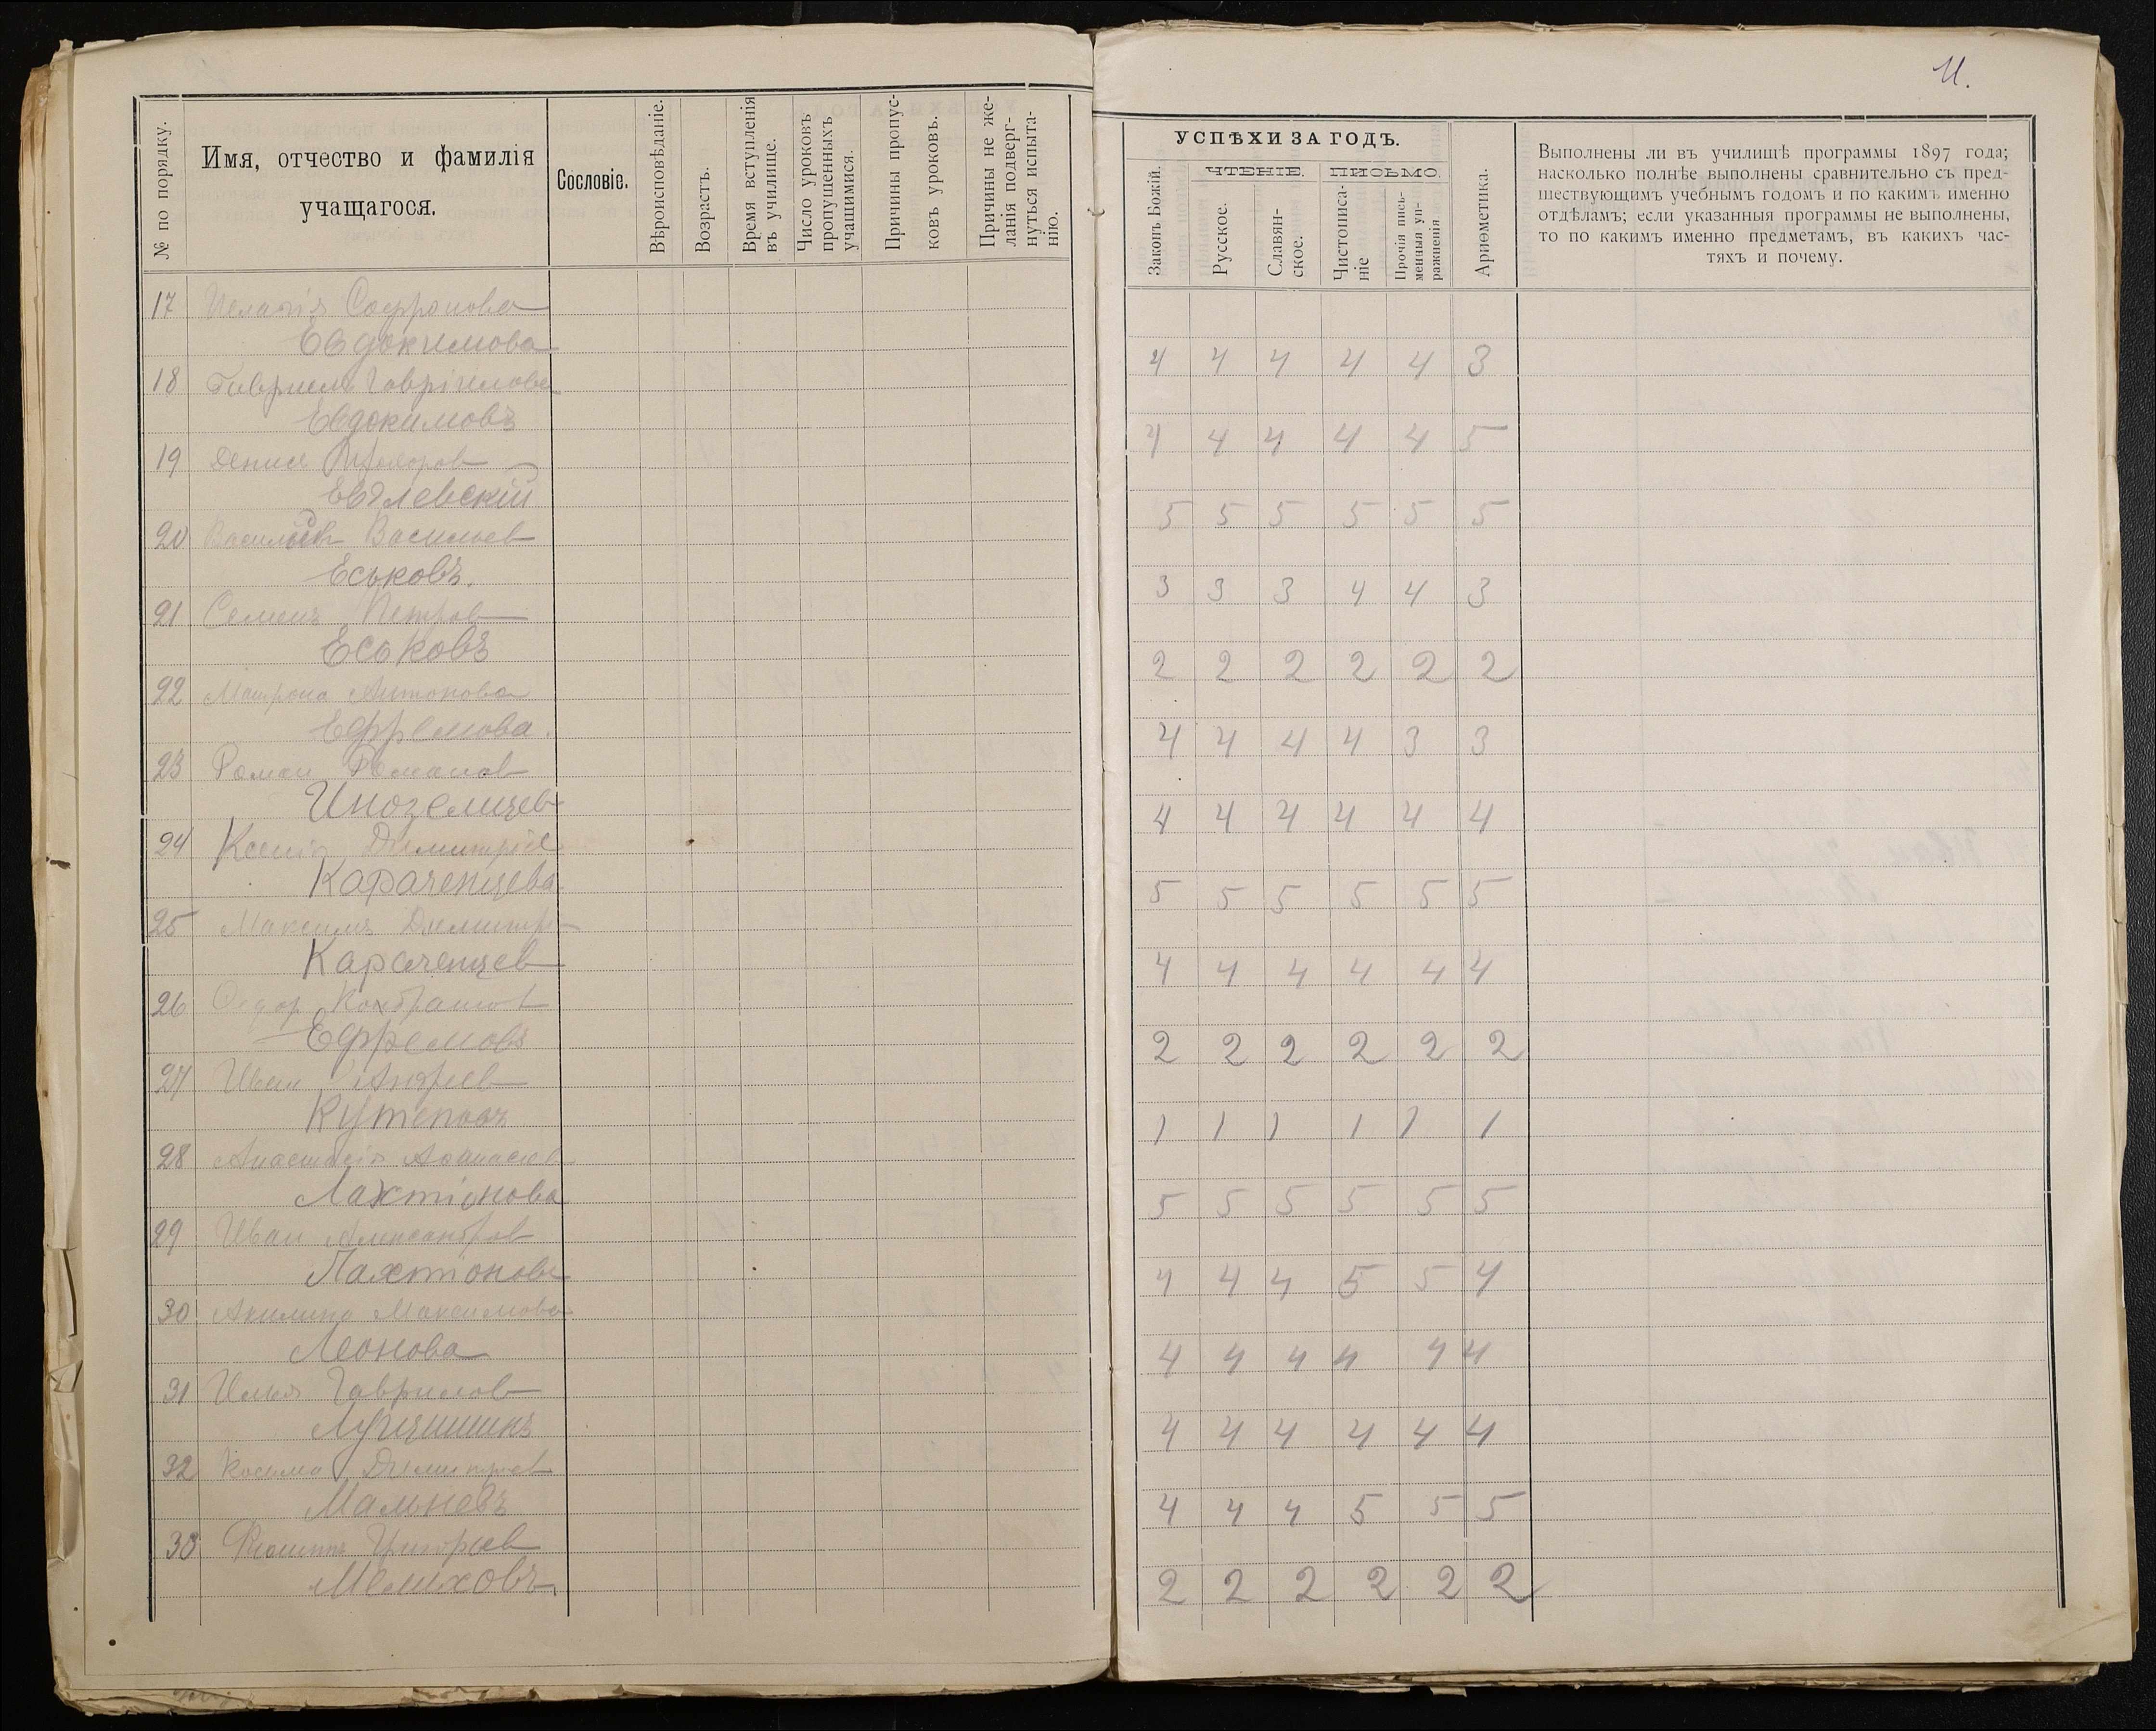 11.
№ по порядку.
Имя, отчество и фамилія
учащагося.
Сословіе.
Вѣроисповѣданіе.
Возрастъ.
Время вступленія
въ училище.
Число уроковъ
пропущенныхъ
учащимися.
Причины пропус-
ковъ уроковъ.
Причины не же-
ланія подверг-
нуться испыта-
нію.
УСПѢХИ ЗА ГОДЪ.
Законъ Божій.
ЧТЕНІЕ.
Русское.
Славян-
ское.
ПИСЬМО.
Чистописа-
ніе
Прочія пись-
менныя уп-
ражненія
Ариѳметика.
Выполнены ли въ училищѣ программы 1897 года;
насколько полнѣе выполнены сравнительно съ пред-
шествующимъ учебнымъ годомъ и по какимъ именно
отдѣламъ; если указанныя программы не выполнены,
то по какимъ именно предметамъ, въ какихъ час-
тяхъ и почему.
17 Пелагія Софронова
Евдокимова 4 4 4 4 4 3
18 Гавріилъ Гавріилова
Евдокимовъ 4 4 4 4 4 5
19 Денис
Евдлевскій 5 5 5 5 5 5
20 Васильев
Еськовъ. 3 3 3 4 4 3
21 Семенъ Петров
Еськовъ 2 2 2 2 2 2
22 Матрона Антонова
Ефремова. 4 4 4 4 3 3
23 Роман Романов
Иноземцев 4 4 4 4 4 4
24 Ксенія Димитріев
Караченцева 5 5 5 5 5 5
25 Максимъ Димитр
Караченцев 4 4 4 4 4 4
26 Ѳедор Кондратов
Ефремовъ 2 2 2 2 2 2
27 Иван Андреев
Кутеповъ 1 1 1 1 1 1
28 Анастасія Аѳанасьев
Лахтіонова 5 5 5 5 5 5
29 Иван Александров
Лахтіонов 4 4 4 5 5 4
30 Акилина Максимова
Леонова 4 4 4 4 4 4
31 Илья Гаврилов
4 4 4 4 4 4
32 Косьма Димитріев
Мальневъ 4 4 4 5 5 5
33 Филиппъ Григорьев
Мелиховъ 2 2 2 2 2 2